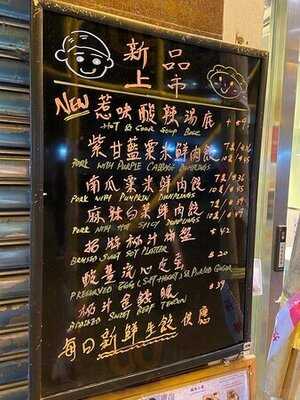 新品
上市
NEW 惹味酸辣湯底 + 9
HOT & SOUR SOUP BASE
紫甘藍粟米鮮肉餃
PORK WITH PURPLE CABBAGE DUMPLINGS
南瓜粟米鮮肉餃
PORK WITH PUMPKIN DUMPLINGS
麻辣白菜鮮肉餃
PORK WITH HOT SPICY DUMPLINGS
招牌秘汁拼盤 $42
BRAISED SWEET SOY PLATTER
酸薑流心皮蛋 $20
PRESERVED EGG (SOFT-HEART) & PICKLED GINGER
秘汁金錢腱 $39
BRAISED SWEET BEEF TENDON
每日新鮮生餃供應